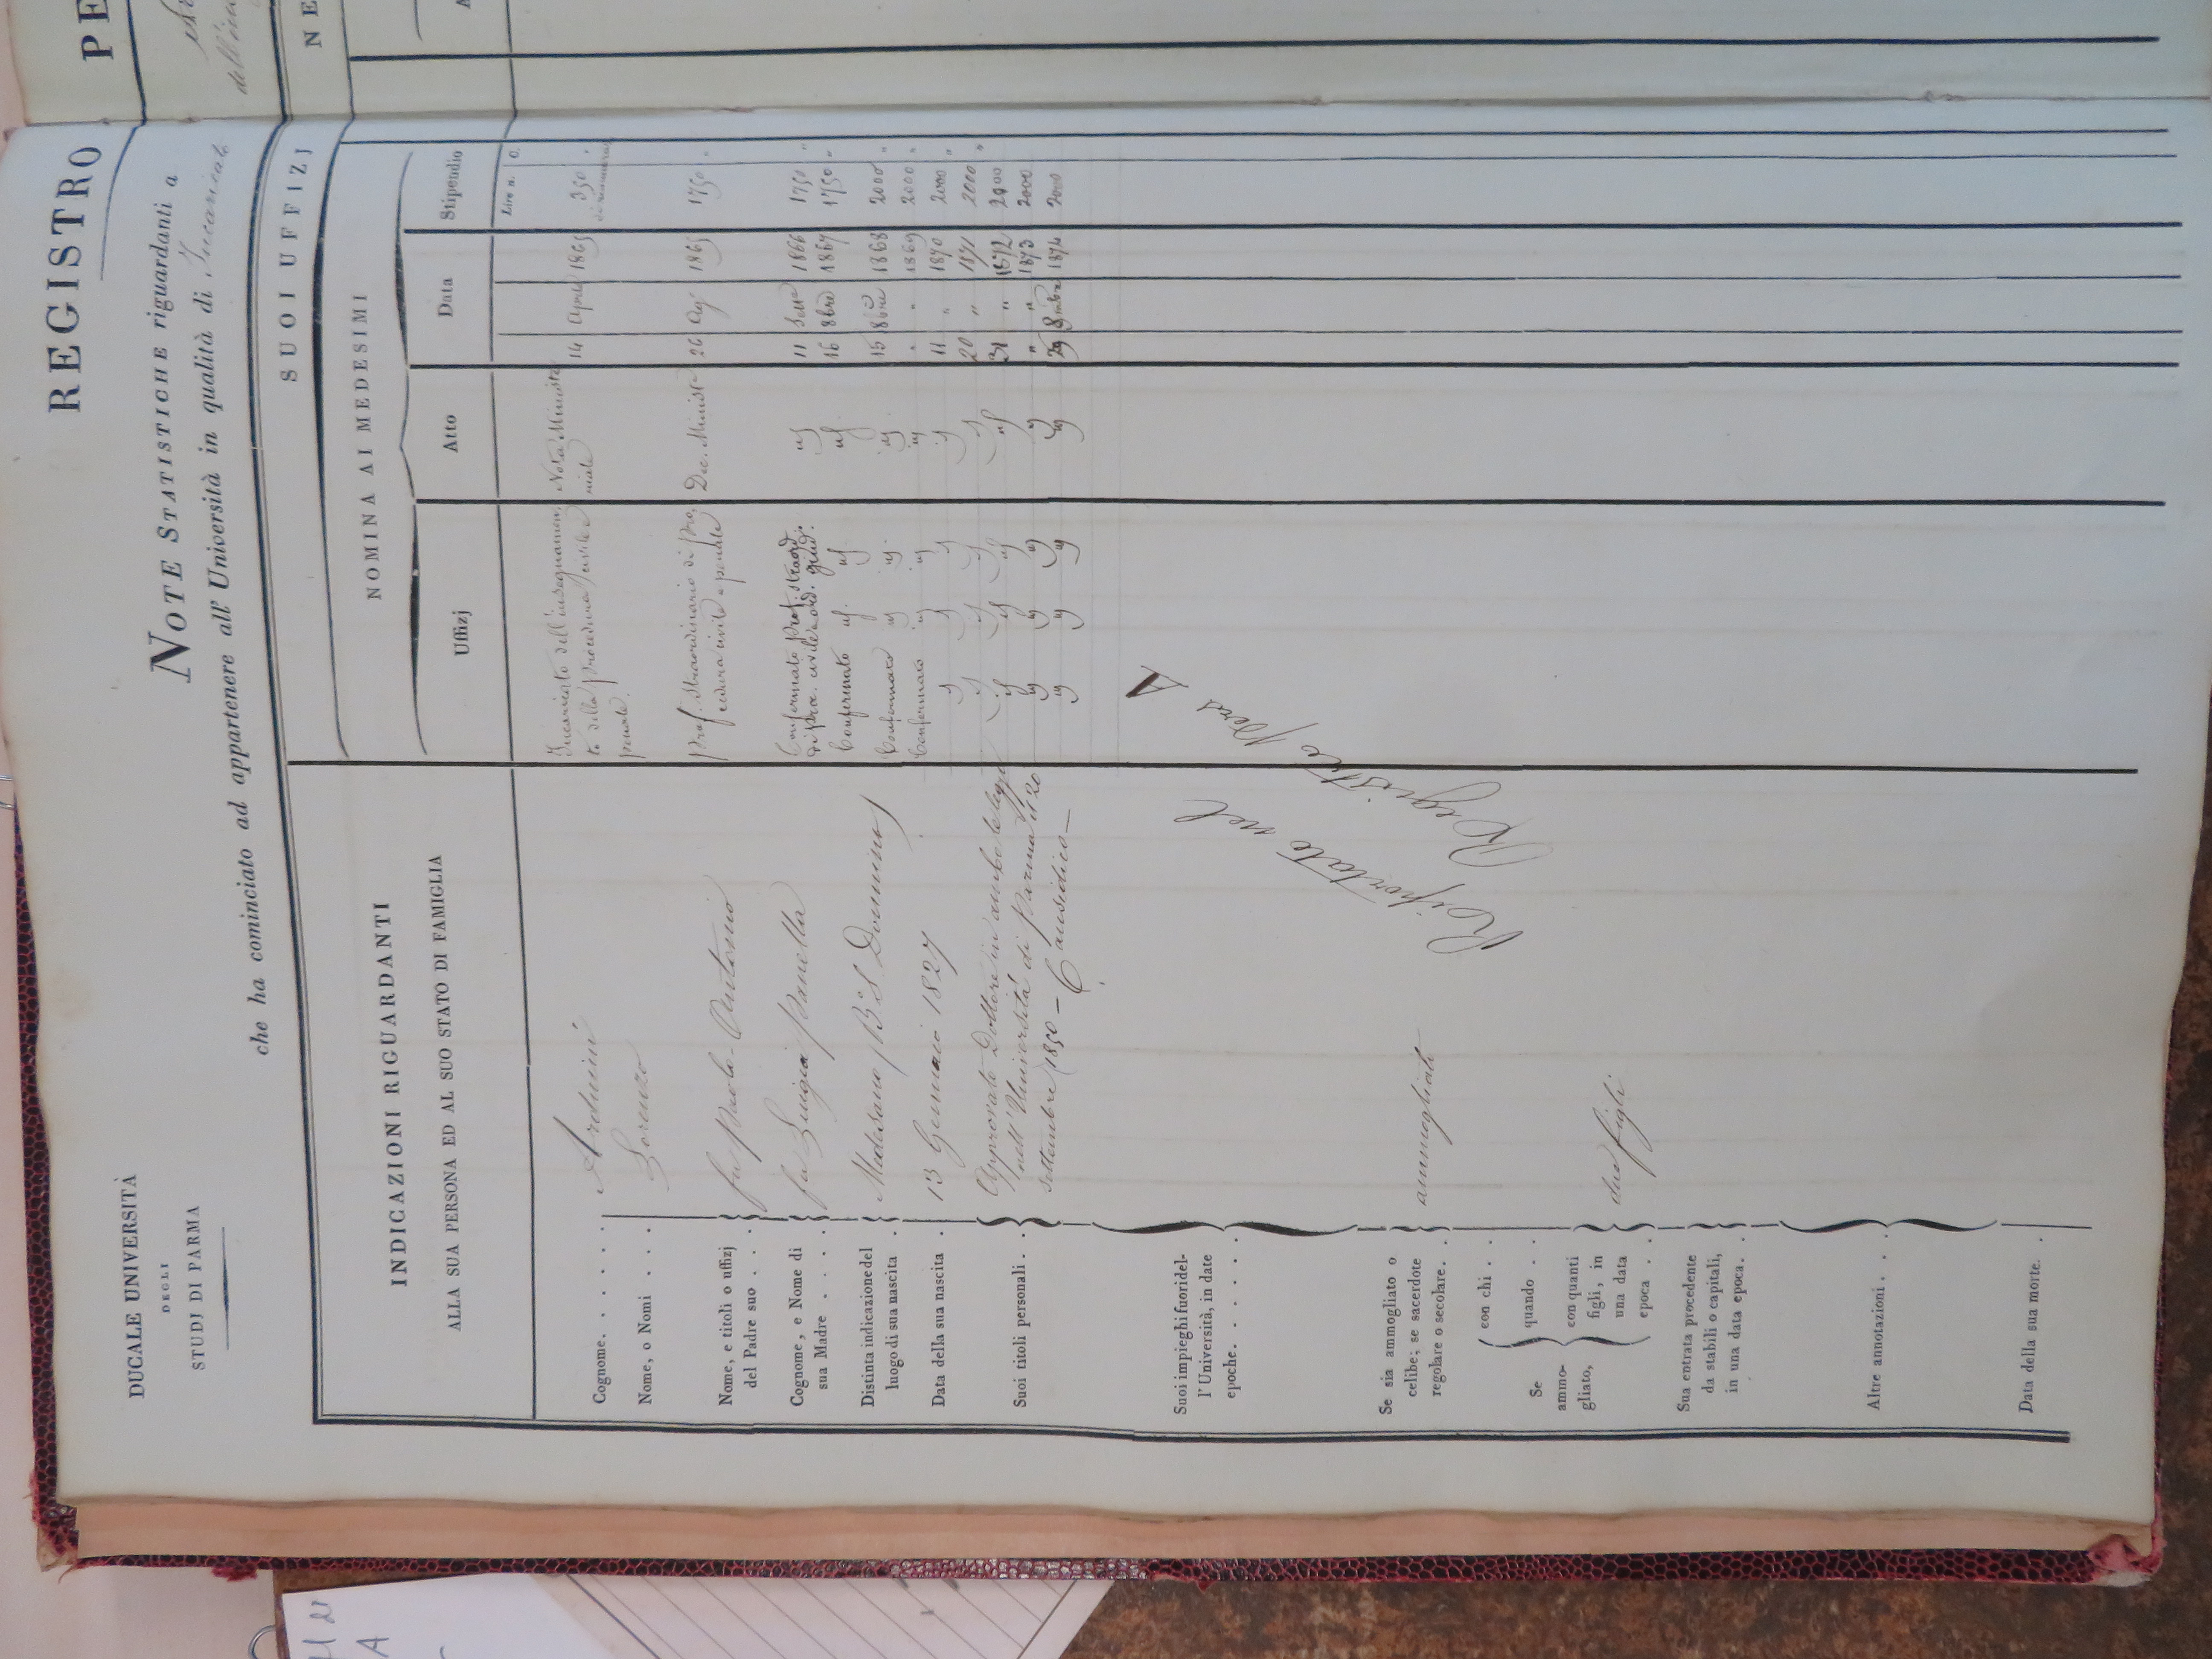 REGISTRO
PE
DUCALE UNIVERSITÀ
DEGLI
STUDJ DI PARMA
NOTE STATISTICHE riguardanti a
che ha cominciato ad appartenere all' Università in qualità di Incaricato
dell'
INDICAZIONI RIGUARDANTI
ALLA SUA PERSONA ED AL SUO STATO DI FAMIGLIA
SUOI UFFIZJ
NE
NOMINA AI MEDESIMI
Uffizj
Atto
Data
Stipendio
A
Lire n. C.
Cognome. . . . . . Arduini
Nome, o Nomi . . . . Lorenzo
Nome, e titoli o uffizj
del Padre suo . . . fu Paolo-Antonio
Cognome, e Nome di
sua Madre . . . . fu Luigia Panella
Distinta indicazione del
luogo di sua nascita . Medesano (B.S. Donnino)
Data della sua nascita . 13 Gennaio 1827
Suoi titoli personali . . Approvato Dottore in ambe le leggi
nell'Università di Parma il 20
Settembre 1850 - Causidico -
Suoi impieghi fuori del-
l'Università, in date
epoche. . . . . .
Se sia ammogliato o
celibe; se sacerdote
regolare o secolare. . ammogliato
Se
ammo-
gliato,
con chi . .
quando . .
con quanti
figli, in
una data
epoca . . due figli
Sua entrata procedente
da stabili o capitali,
in una data epoca. .
Altre annotazioni. . .
Data della sua morte. .
Incaricato dell'insegnamen-
to della procedura civile e
penale. Nota Ministe-
riale 14 Aprile 1865 350
Prof. Straordinario di Pro-
cedura civile e penale Dec. Minist. 26 Ag. 1865 1750 "
Confermato Prof. straord.
di proc. civile e ord. giud. id 11 Sett. 1866 1750 "
Confermato id. id id 16 8bre 1867 1750 "
Confermato id id. id 15 8bre 1868 2000 "
Confermato id id id " " 1869 2000 "
id id id id 11 " 1870 2000 "
id id id id 20 " 1871 2000 "
id id id id 31 " 1872 2000
id id id id " " 1873 2000
id id id id 29 8mbre 1874 2000
Riportato nel
Registro Pers A